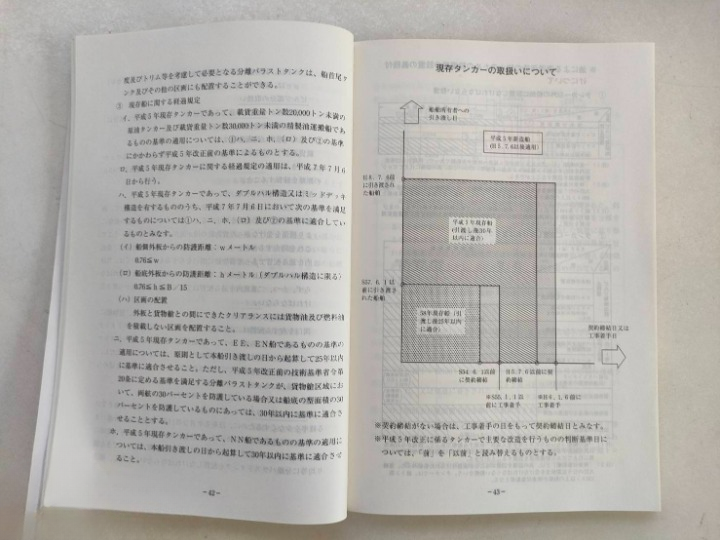 度及びトリム等を考慮して必要となる分離バラストタンクは、船首尾タ
ンク及びその他の区画にも配置することができる。
③ 現存船に関する経過規定
イ、平成5年現存タンカーであって、載貨重量トン数20,000トン未満の
原油タンカー及び載貨重量トン数30,000トン未満の精製油運搬船であ
るものの基準の適用については、①ハ、ニ、ホ、(ロ) 及び②の基準
にかかわらず平成5年改正前の基準によるものとする。
ロ、平成5年現存タンカーに関する経過規定の適用は、平成7年7月6
日から行う。
ハ、平成5年現存タンカーであって、ダブルハル構造又はミッドデッキ
構造を有するもののうち、平成7年7月6日において次の基準を満足
するものについては①ハ、ニ、ホ、(ロ) 及び②の基準に適合してい
るものとみなす。
(イ) 船側外板からの防護距離：wメートル
0.76≦w
(ロ) 船底外板からの防護距離：hメートル (ダブルハル構造に限る)
0.76≦h≦B／15
(ハ) 区画の配置
外板と貨物艙との間にできたクリアランスには貨物油及び燃料油
を積載しない区画を配置すること。
ニ、平成5年現存タンカーであって、EE、EN船であるものの基準の
適用については、原則として本船引き渡しの日から起算して25年以内
に基準に適合させること。ただし、平成5年改正前の技術基準省令第
20条に定める基準を満足する分離バラストタンクが、貨物艙区域にお
いて、両舷の30パーセントを防護している場合又は船底の全面積の30
パーセントを防護しているものにあっては、30年以内に基準に適合さ
せることとする。
ホ、平成5年現存タンカーであって、NN船であるものの基準の適用に
ついては、本船引き渡しの日から起算して30年以内に基準に適合させ
ること。
－42－
現存タンカーの取扱いについて
船舶所有者への
引き渡し日
平成5年新造船
(H5.7.6以後適用)
H8.7.6前
に引き渡された
船舶
平成5年現存船
(引渡し後30年
以内に適合)
S57.6.1以
前に引き渡さ
れた船舶
58年現存船 (引
渡し後25年以内
に適合)
契約締結日又は
工事着手日
S54.6.1以前
に契約締結
H5.7.6以前に契
約締結
※S55.1.1以
前に工事着手
※H6.1.6前に
工事着手
※契約締結がない場合は、工事着手の日をもって契約締結日とみなす。
※平成5年改正に係るタンカーで主要な改造を行うものの判断基準日に
ついては、「前」を「以前」と読み替えるものとする。
－43－